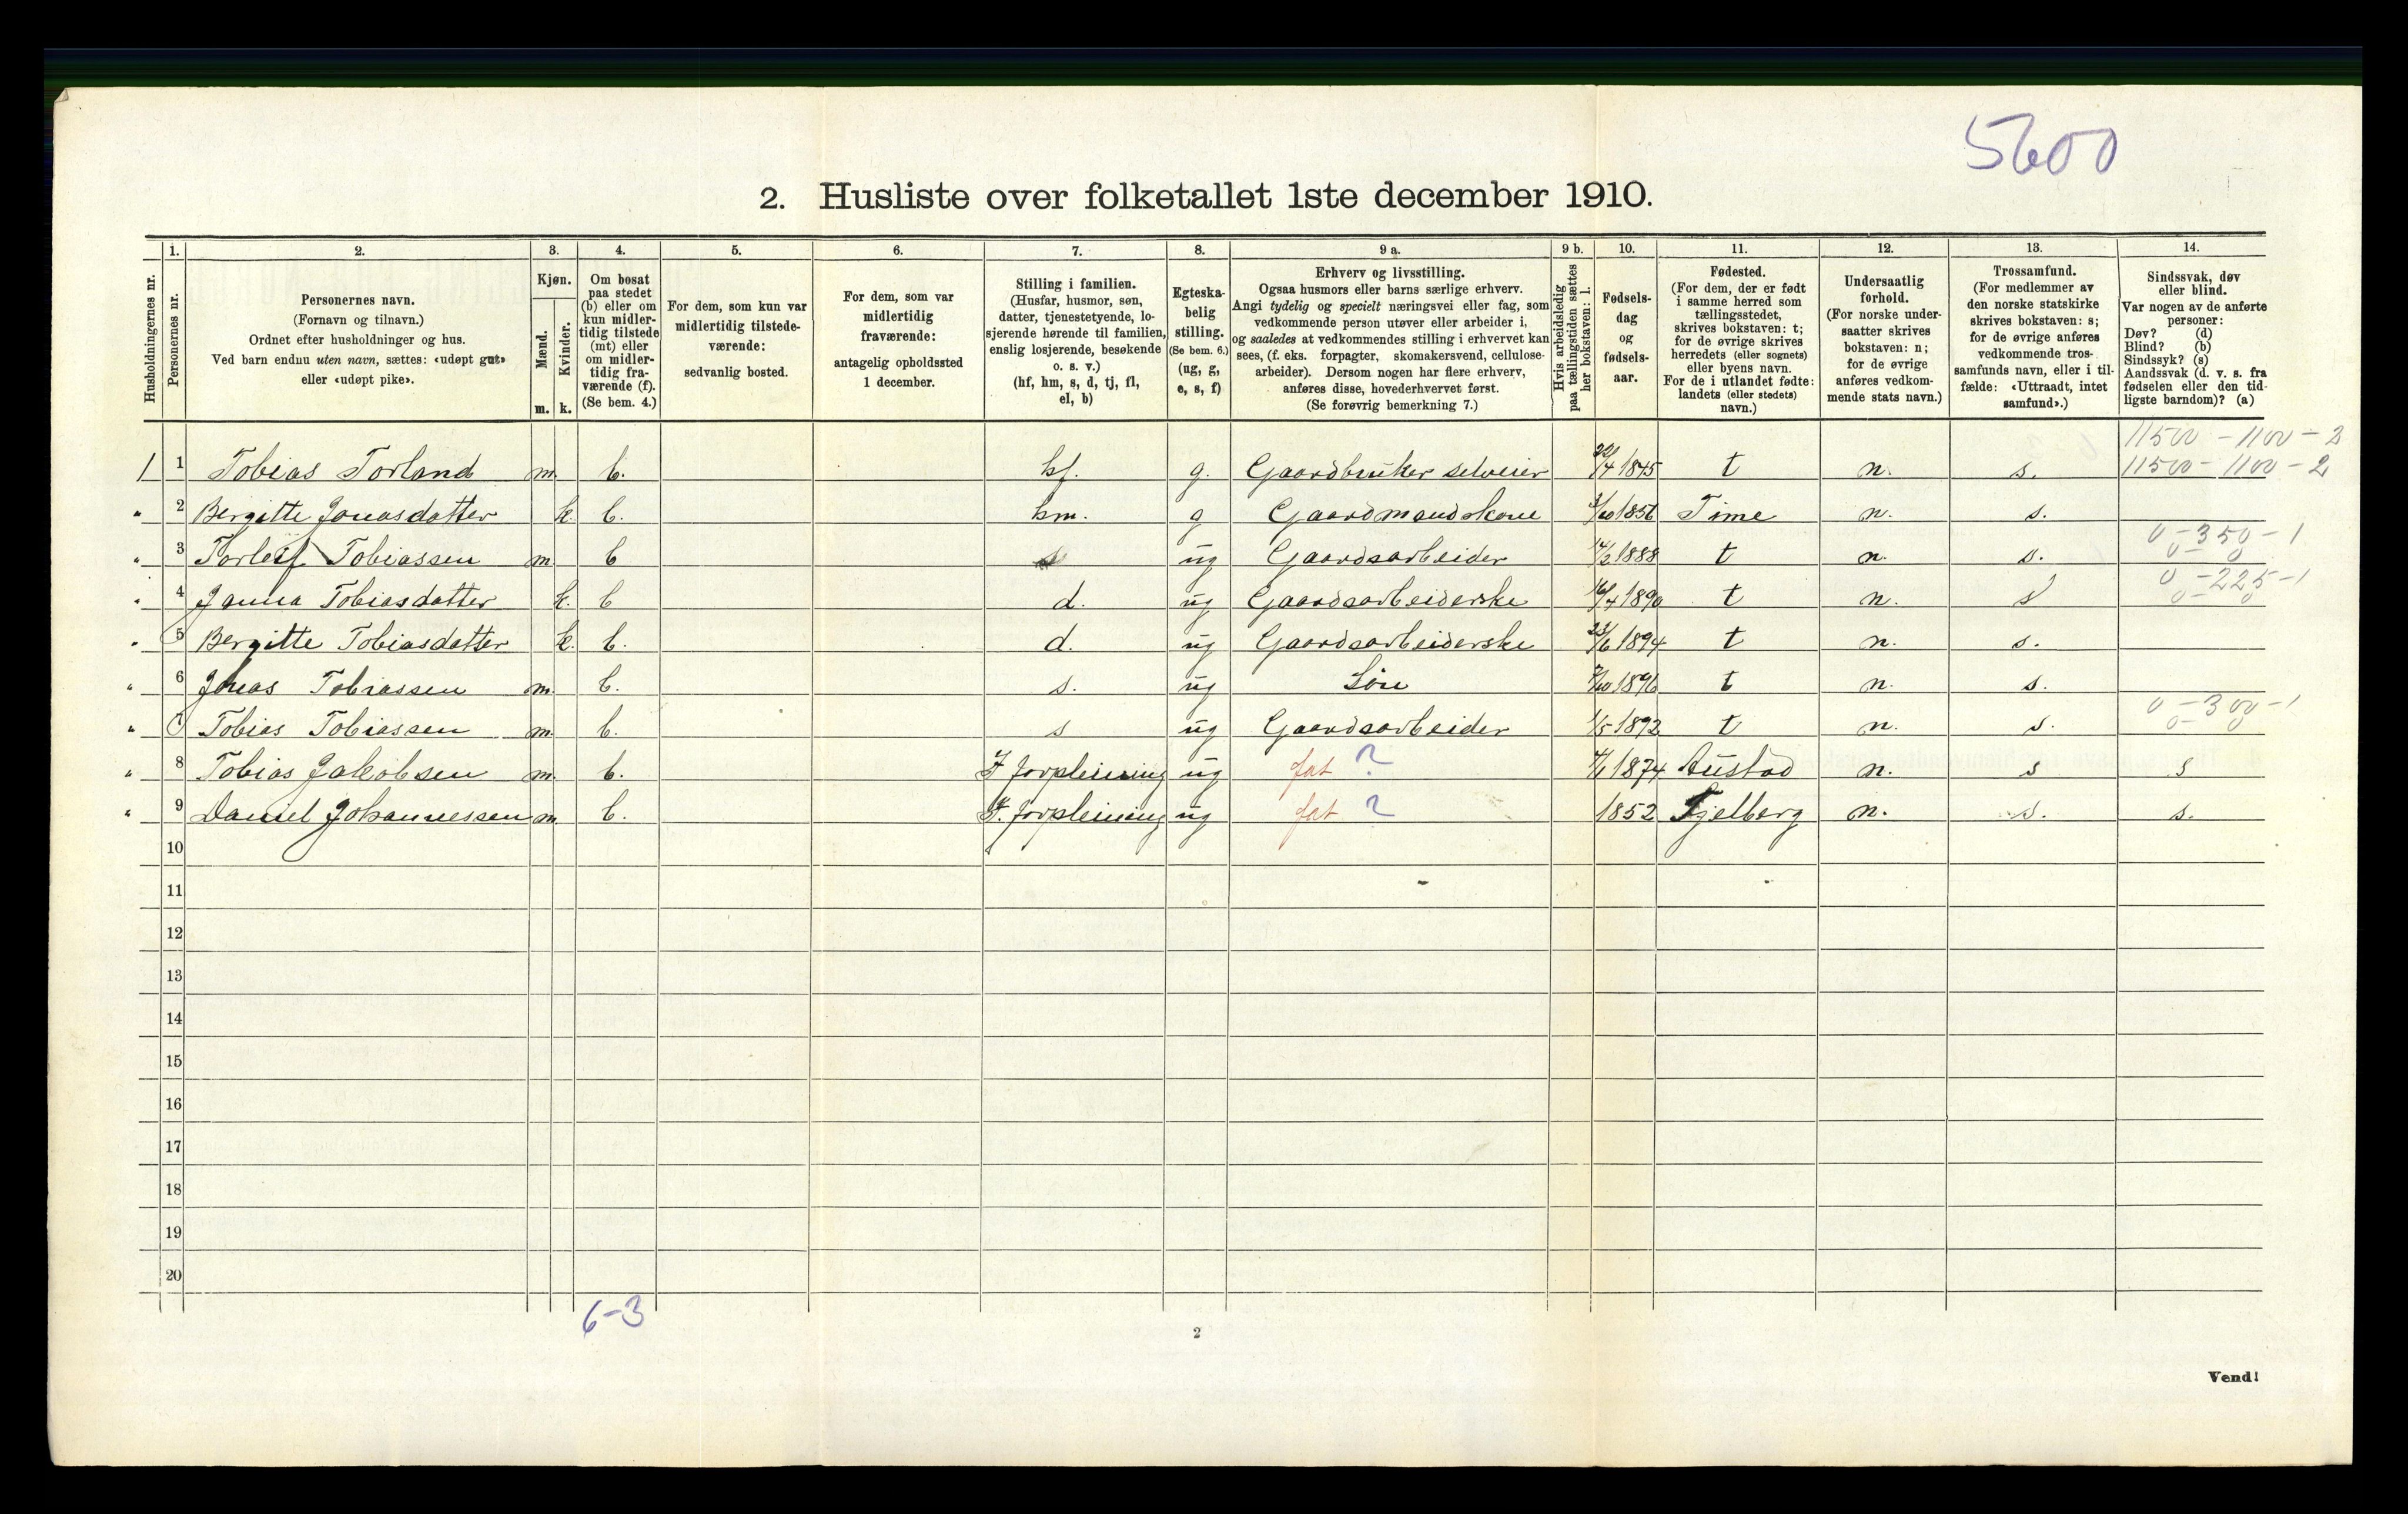 5600
2. Husliste over folketallet 1ste december 1910.
Husholdningernes nr.
1.
Personernes nr.
2.
Personernes navn.
(Fornavn og tilnavn.)
Ordnet efter husholdninger og hus.
Ved barn endnu uten navn, sættes: «udøpt gut»
eller «udøpt pike».
3.
Kjøn.
Mænd.
Kvinder.
m. k.
4.
Om bosat
paa stedet
(b) eller om
kun midler-
tidig tilstede
(mt) eller
om midler-
tidig fra-
værende (f).
(Se bem. 4.)
5.
For dem, som kun var
midlertidig tilstede-
værende:
sedvanlig bosted.
6.
For dem, som var
midlertidig
fraværende:
antagelig opholdssted
1 december.
7.
Stilling i familien.
(Husfar, husmor, søn,
datter, tjenestetyende, lo-
sjerende hørende til familien,
enslig losjerende, besøkende
o. s. v.)
(hf, hm, s, d, tj, fl,
el, b)
8.
Egteska-
belig
stilling.
(Se bem. 6.)
(ug, g,
e, s, f)
9 a.
Erhverv og livsstilling.
Ogsaa husmors eller barns særlige erhverv.
Angi tydelig og specielt næringsvei eller fag, som
vedkommende person utøver eller arbeider i,
og saaledes at vedkommendes stilling i erhvervet kan
sees, (f. eks. forpagter, skomakersvend, cellulose-
arbeider). Dersom nogen har flere erhverv,
anføres disse, hovederhvervet først.
(Se forøvrig bemerkning 7.)
9 b.
Hvis arbeidsledig
paa tællingstiden sættes
her bokstaven: l.
10.
Fødsels-
dag
og
fødsels-
aar.
11.
Fødested.
(For dem, der er født
i samme herred som
tællingsstedet,
skrives bokstaven: t;
for de øvrige skrives
herredets (eller sognets)
eller byens navn.
For de i utlandet fødte:
landets (eller stedets)
navn.)
12.
Undersaatlig
forhold.
(For norske under-
saatter skrives
bokstaven: n;
for de øvrige
anføres vedkom-
mende stats navn.)
13.
Trossamfund.
(For medlemmer av
den norske statskirke
skrives bokstaven: s;
for de øvrige anføres
vedkommende tros-
samfunds navn, eller i til-
fælde: «Uttraadt, intet
samfund».)
14.
Sindssvak, døv
eller blind.
Var nogen av de anførte
personer:
Døv? (d)
Blind? (b)
Sindssyk? (s)
Aandssvak (d. v. s. fra
fødselen eller den tid-
ligste barndom)? (a)
11500 - 1100 - 2
1 1 Tobias Torland m. b. hf. g. Gaardbruker selveier 22/4 1845 t n. s. 11500 - 1100 - 2
" 2 Bergitte Jonasdatter k. b. hm. g Gaardmandskone 3/10 1856 Time n. s.
0 - 350 - 1
" 3 Torleif Tobiassen m b s ug Gaardsarbeider 14/2 1888 t n. s. 0 - 0
0 - 225 - 1
" 4 Janna Tobiasdatter k. b d. ug Gaardsarbeiderske 16/4 1890 t n. s 0 - 0
" 5 Bergitte Tobiasdatter k. b. d. ug Gaardsarbeiderske 23/6 1894 t n. s.
" 6 Jonas Tobiassen m. b. s. ug Søn 7/10 1896 t n. s.
0 - 300 - 1
" 7 Tobias Tobiassen m. b. s ug Gaardsarbeider 1/5 1892 t n. s. 0 - 0
" 8 Tobias Jakobsen m. b. I forpleining ug fat ? 4/1 1874 Austad n. s s
" 9 Daniel Johannessen m. b. I. forpleining ug fat ? 1852 Fjelberg n. s. s.
10
11
12
13
14
15
16
17
18
19
20
6-3
2
Vend!